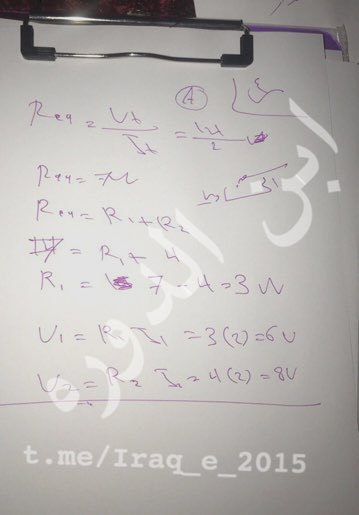 A
Req = Vt / It = 14 / 2
Req = 7Ω
Req = R1 + R2
7 = R1 + 4
R1 = 7 - 4 = 3 Ω
V1 = R1 I1 = 3(2) = 6V
V2 = R2 I2 = 4(2) = 8V
ابن الدورة
t.me/Iraq_e_2015